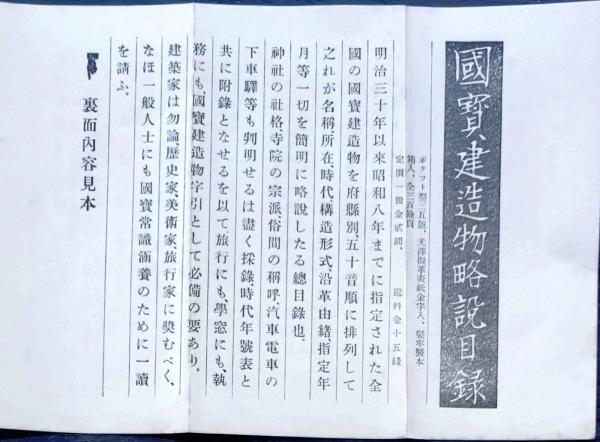 國寶建造物略説目録
ポケット型三五版、光澤擬革表紙金字入、堅牢製本
箱入、全三百餘頁
定價一冊金貳圓、送料金十五錢
明治三十年以來昭和八年までに指定された全
國の國寶建造物を府縣別、五十音順に排列して
之れが名稱、所在、時代、構造形式、沿革由緒、指定年
月等一切を簡明に略説したる總目錄也、
神社の社格、寺院の宗派、俗間の稱呼、汽車電車の
下車驛等も判明せるは盡く採錄、時代年號表と
共に附錄となせるを以て、旅行にも、學窓にも、執
務にも、國寶建造物字引として必備の要あり。
建築家は勿論、歷史家美術家、旅行家に奬むべく、
なほ一般人士にも國寶常識涵養のために一讀
を請ふ、
裏面內容見本